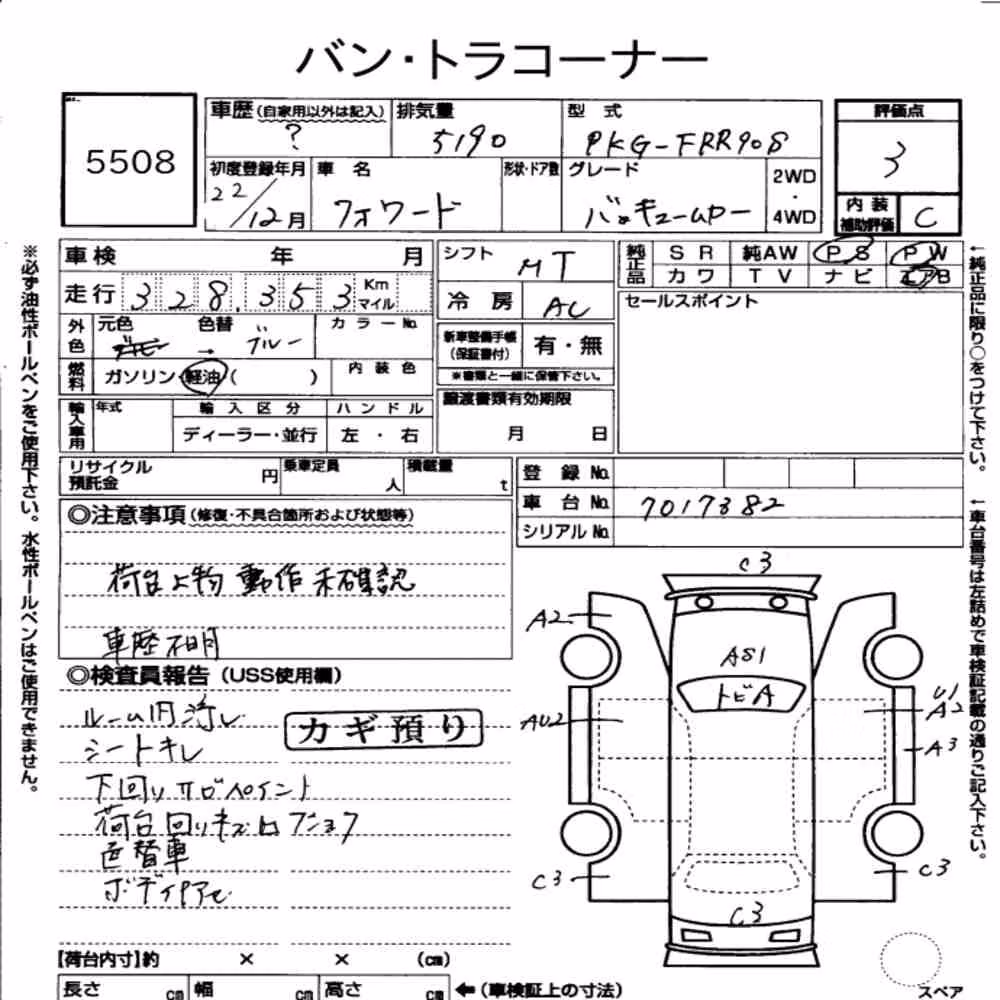 バン・トラコーナー
5508
車歴(自家用以外は記入) 排気量 型式 評価点
? 5190 PKG-FRR90S 3
初度登録年月 車名 形状・ドア数 グレード 2WD・4WD 内装補助評価 C
22/12月 フォワード バキュームカー
※必ず油性ボールペンをご使用下さい。水性ボールペンはご使用できません。
車検 年 月
走行 328,353 Km マイル
外色 元色 色替 カラーNo.
→ ブルー
燃料 ガソリン・軽油( ) 内装色
輸入車用 年式 輸入区分 ハンドル
ディーラー・並行 左・右
シフト MT
冷房 AC
新車整備手帳(保証書付) 有・無
※書類と一緒に保管下さい。
譲渡書類有効期限
月 日
純正品 SR 純AW PS PW
カワ TV ナビ エアB
セールスポイント
←純正品に限り○をつけて下さい。
リサイクル預託金 円 乗車定員 人 積載量 t
登録No.
車台No. 7017382
シリアルNo.
←車台番号は左詰めで車検証記載の通りご記入下さい。
◎注意事項(修復・不具合箇所および状態等)
荷台上物 動作 未確認
車歴不明
◎検査員報告(USS使用欄)
カギ預り
ルーム内汚レ
シートキレ
下回りサビペイント
荷台回りキズ凹
色替車
C3
A2
AS1
トビA
AU2
U1
A2
A3
C3
C3
C3
【荷台内寸】約 × × (cm)
長さ cm 幅 cm 高さ cm ←(車検証上の寸法)
スペア